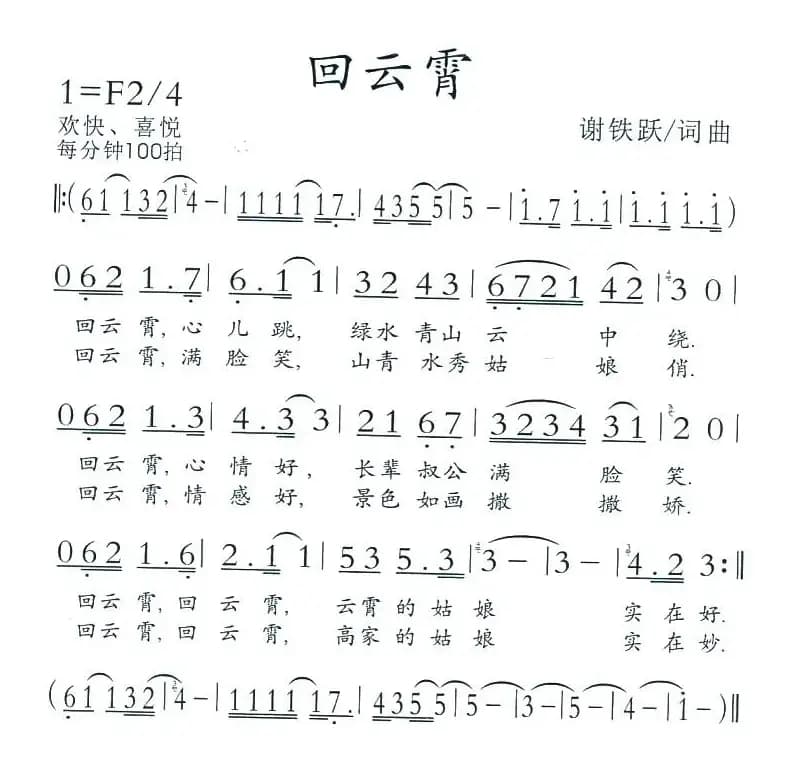 回云霄
1=F2/4
欢快、喜悦
谢铁跃/词曲
每分钟100拍
‖:(61 132|4-|1111 17.|435 5|5-|1.7 1.1|1.1 1.1)
062 1.7|6.1 1|32 43|6721 42|3 0|
回云霄,心儿跳,绿水青山云中绕.
回云霄,满脸笑,山青水秀姑娘俏.
062 1.3|4.3 3|21 67|3234 31|2 0|
回云霄,心情好,长辈叔公满脸笑.
回云霄,情感好,景色如画撒撒娇.
062 1.6|2.1 1|53 5.3|3-|3-|4.2 3:‖
回云霄,回云霄,云霄的姑娘实在好.
回云霄,回云霄,高家的姑娘实在妙.
(61 132|4-|1111 17.|435 5|5-|3-|5-|4-|1-)‖